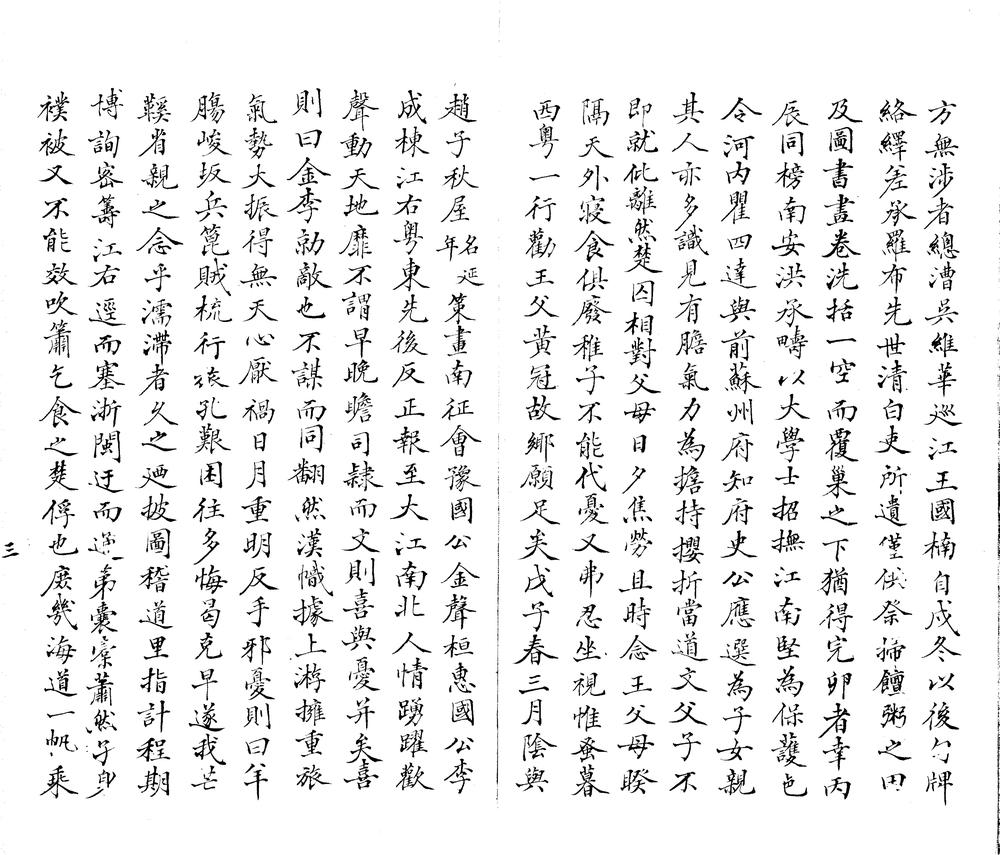 方無涉者總漕吳維華巡江王國楠自戌冬以後勾牌
絡繹差承羅布先世清白吏所遺僅供祭掃饘粥之田
及圖書畫卷洗括一空而覆巢之下猶得完卵者幸丙
辰同榜南安洪承疇以大學士招撫江南堅為保護邑
令河內瞿四達與前蘇州府知府史公應選為子女親
其人亦多識見有膽氣力為擔持攖折當道文父子不
即就仳離然楚囚相對父母日夕焦勞且時念王父母睽
隔天外寢食俱廢稚子不能代憂又弗忍坐視惟蚤暮
西粵一行勸王父黃冠故鄉願足矣戊子春三月陰與
趙子秋屋名延年策畫南征會豫國公金聲桓惠國公李
成棟江右粵東先後反正報至大江南北人情踴躍歡
聲動天地靡不謂早晚瞻司隸而文則喜與憂并矣喜
則曰金李勍敵也不謀而同翻然漢幟據上游擁重旅
氣勢大振得無天心厭禍日月重明反手邪憂則曰羊
腸峻坂兵箆賊梳行旅孔艱困往多悔曷克早遂我芒
鞵省親之念乎濡滯者久之廼披圖稽道里指計程期
博詢密籌江右逕而塞浙閩迂而通第囊橐蕭然子身
襆被又不能效吹簫乞食之楚俘也庶幾海道一帆乘
三